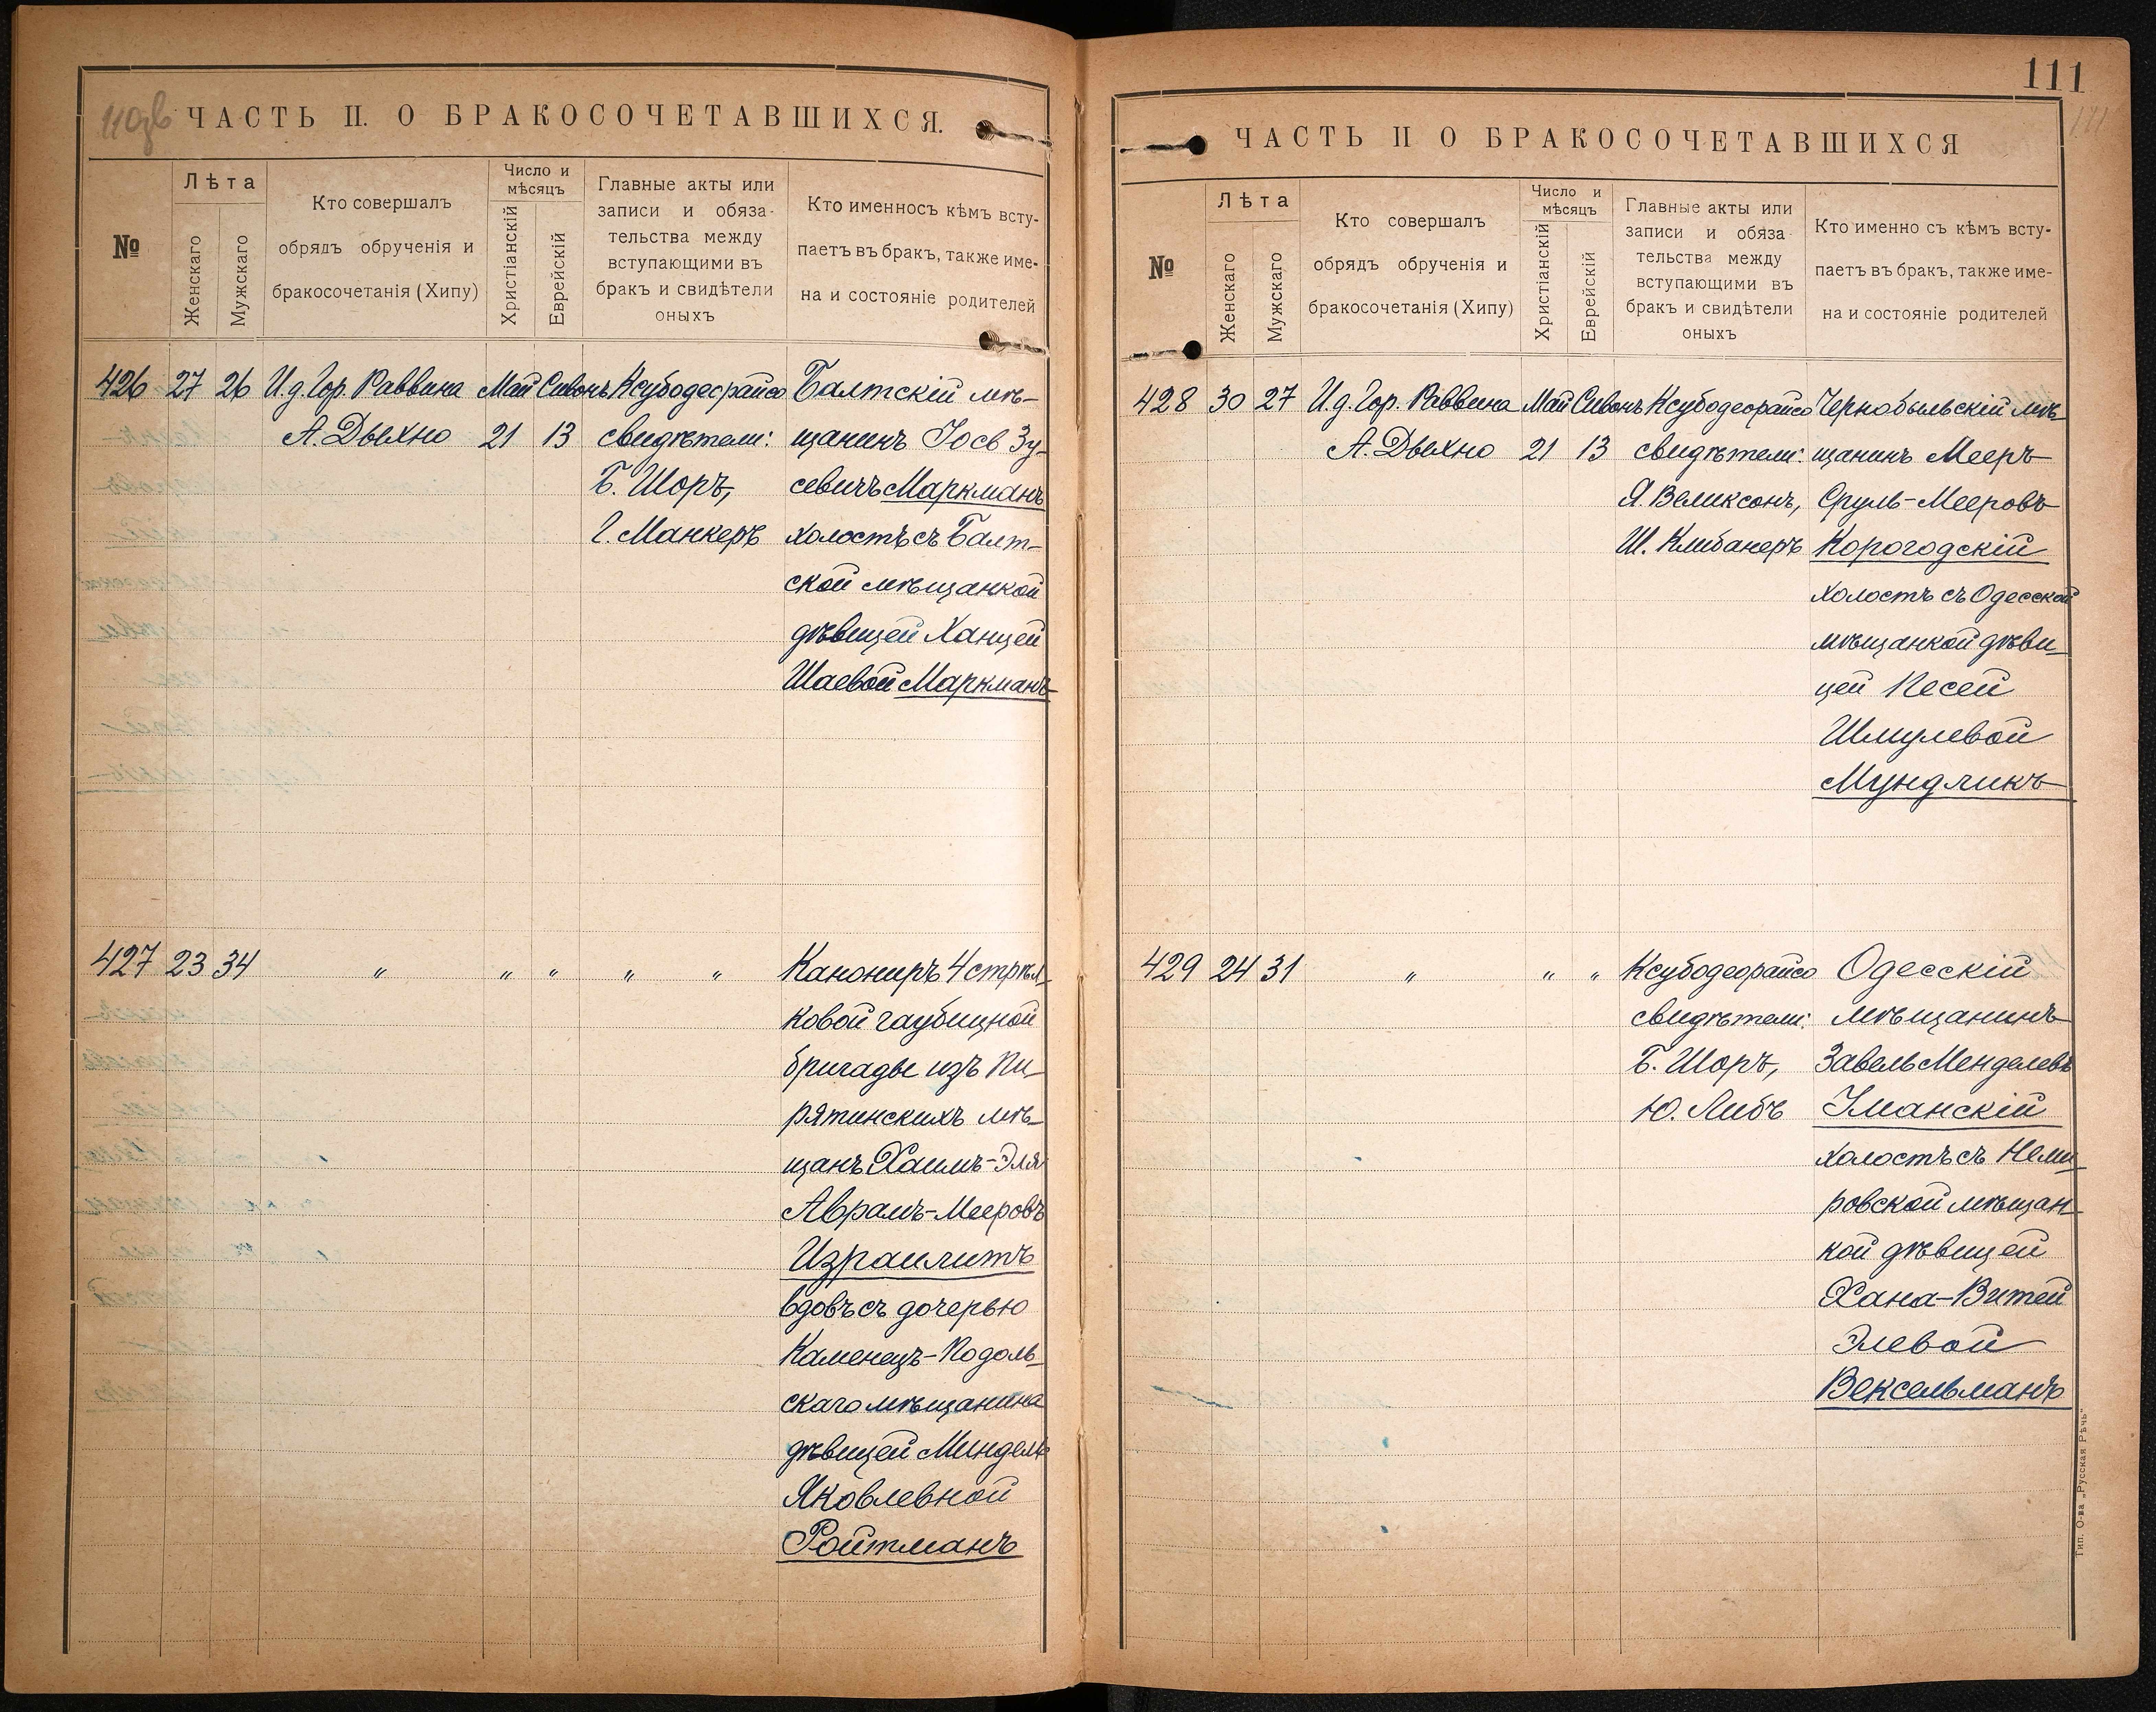 110 об
ЧАСТЬ II. О БРАКОСОЧЕТАВШИХСЯ.
№
Лѣта
Женскаго
Мужскаго
Кто совершалъ
обрядъ обрученія и
бракосочетанія (Хипу)
Число и
мѣсяцъ
Христіанскій
Еврейскій
Главные акты или
записи и обяза-
тельства между
вступающими въ
бракъ и свидѣтели
оныхъ
Кто именносъ кѣмъ всту-
паетъ въ бракъ, также име-
на и состояніе родителей
426 27 26 И.д. Гор. Раввина Май Сивонъ Ксубодеорайсо Балтскій мѣ-
А. Дыхно 21 13 свидѣтели: щанинъ Іосв Зу-
Б. Шоръ, севичъ Маркманъ
Г. Манкеръ холостъ съ Балт-
ской мѣщанкой
дѣвицей Ханцей
Шаевой Маркманъ
427 23 34 " " " " " Канониръ 4 стрѣл-
ковой гаубицной
бригады изъ Пи-
рятинскихъ мѣ-
щанъ Хаимъ-Эля
Аврамъ-Мееровъ
Израилитъ
вдовъ съ дочерью
Каменецъ-Подоль-
скаго мѣщанина
дѣвицей Миндель
Яковлевной
Ройтманъ
111
111
ЧАСТЬ II О БРАКОСОЧЕТАВШИХСЯ
№
Лѣта
Женскаго
Мужскаго
Кто совершалъ
обрядъ обрученія и
бракосочетанія (Хипу)
Число и
мѣсяцъ
Христіанскій
Еврейскій
Главные акты или
записи и обяза
тельства между
вступающими въ
бракъ и свидѣтели
оныхъ
Кто именно съ кѣмъ всту-
паетъ въ бракъ, также име-
на и состояніе родителей
428 30 27 И.д. Гор. Раввина Май Сивонъ Ксубодеорайсо Чернобыльскій мѣ-
А. Дыхно 21 13 свидѣтели: щанинъ Мееръ
Я. Великсонъ, Сруль-Мееровъ
Ш. Клибанеръ Корогодскій
холостъ съ Одесской
мѣщанкой дѣви-
цей Песей
Шмулевой
Мундликъ
429 24 31 " " " Ксубодеорайсо Одесскій
свидѣтели: мѣщанинъ
Б. Шоръ, Завель Менделевъ
Ю. Либъ Уманскій
холостъ съ Неми-
ровской мѣщан-
кой дѣвицей
Хана-Витей
Элевой
Вексельманъ
Тип. О-ва „Русская Рѣчь“